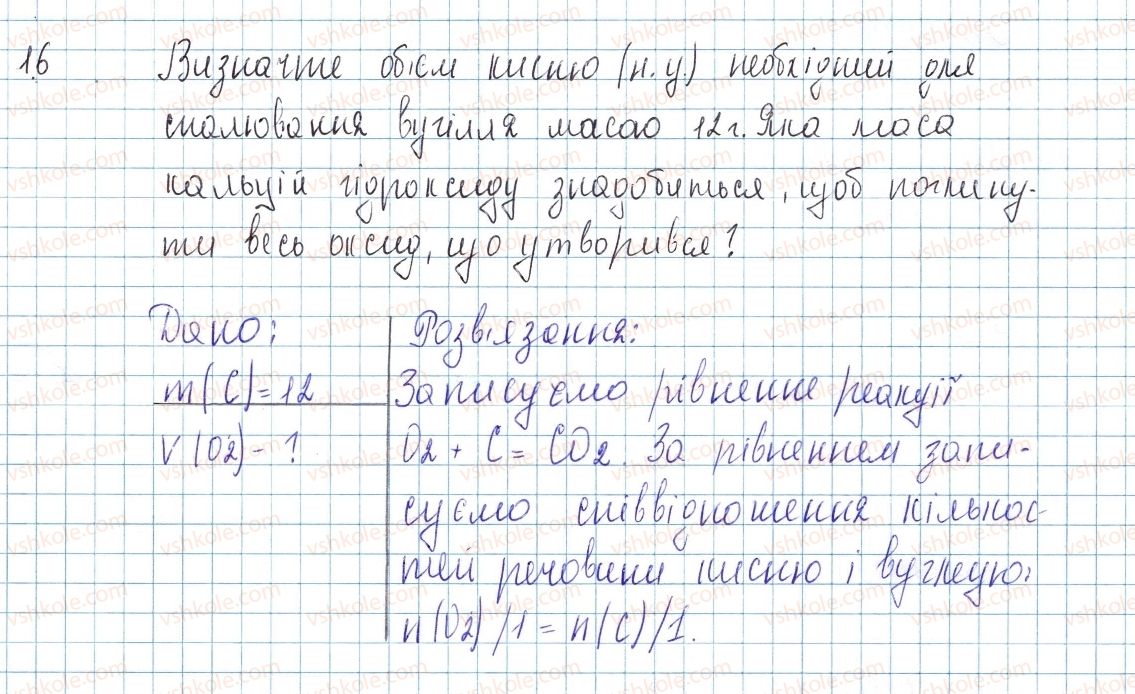 16 Визначте об'єм кисню (н.у.) необхідний для
спалювання вугілля масою 12 г. Яка маса
кальцій гідроксиду знадобиться, щоб поглину-
ти весь оксид, що утворився?
Дано:
m(C)=12
V(O2)-?
Розв'язання:
Записуємо рівнення реакції
O2 + C = CO2. За рівненнем запи-
суємо співвідношення кількос-
тей речовини кисню і вуглецю:
n(O2)/1 = n(C)/1.